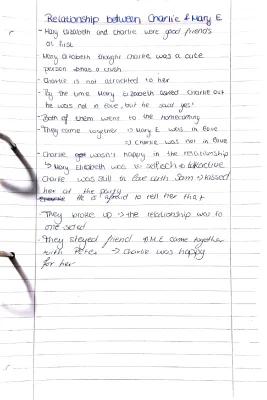 Relationship between Charlie & Mary E.
- Mary Elizabeth and Charlie were good friends
at first
- Mary Elizabeth thought Charlie was a cute
person + has a crush
- Charlie is not attracted to her
- By the time Mary Elizabeth asked Charlie out
he was not in love, but he said yes!
- Both of them went to the homecoming
- They came together → Mary E. was in love
→ Charlie was not in love
- Charlie wasn't happy in the relationship
↳ Mary Elizabeth was to selfisch + talkative
Charlie was still in love with Sam → kissed
her at the party
He is afraid to tell her that
- They broke up → the relationship was to
one sided
- They stayed friend M.E came together
with Peter → Charlie was happy
for her